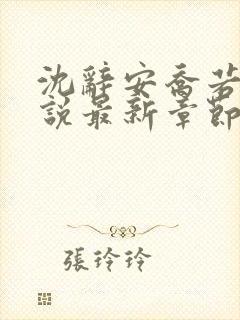 沈辭安喬若
說最新章節
張玲玲